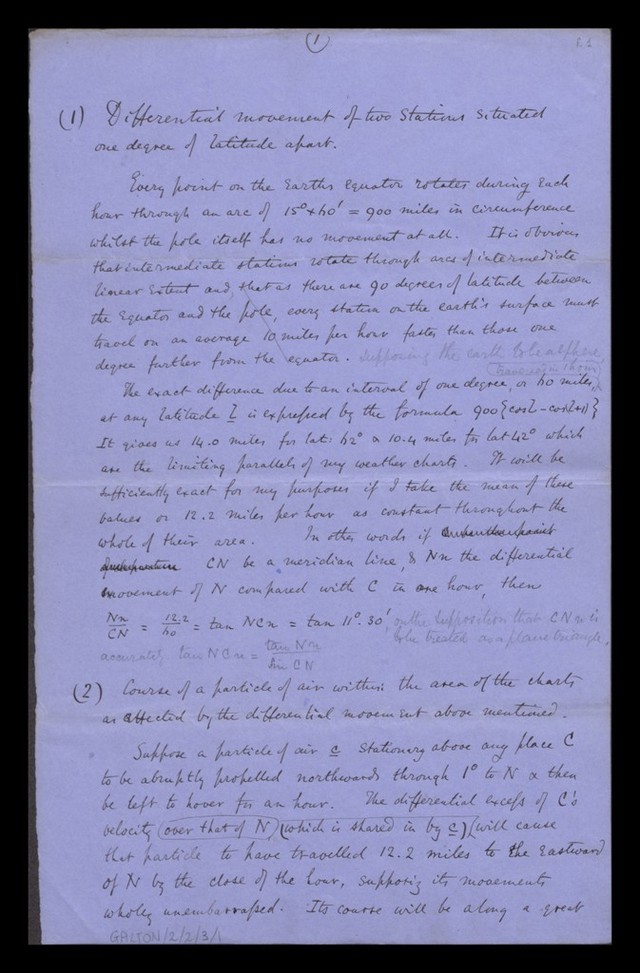 (1)
f. 1
(1) Differential movement of two Stations situated
one degree of latitude apart.
Every point on the Earths Equator rotates during each
hour through an arc of 15° × 60' = 900 miles in circumference
whilst the pole itself has no movement at all. It is obvious
that intermediate stations rotate through arcs of intermediate
linear extent and, that as there are 90 degrees of latitude between
the Equator and the pole, every station on the earth's surface must
travel on an average 10 miles per hour faster than those one
degree further from the equator. supposing the earth to be a sphere
The exact difference due to an interval of one degree, or 60 miles,
at any latitude l is expressed by the formula 900 {cos l - cos(l+1)}
It gives us 14.0 miles for lat: 62° & 10.4 miles for lat 42° which
are the limiting parallels of my weather charts. It will be
sufficiently exact for my purposes if I take the mean of these
values or 12.2 miles per hour as constant throughout the
whole of their area. In other words if
CN be a meridian line, & Nn the differential
movement of N compared with C in one hour, then
Nn/CN = 12.2/60 = tan NCn = tan 11°. 30', on the supposition that CNn is
to be treated as a plane triangle.
accurately tan NCn = tan Nn / sin CN
(2) Course of a particle of air within the area of the charts
as affected by the differential movement above mentioned.
Suppose a particle of air c stationery above any place C
to be abruptly propelled northwards through 1° to N & then
be left to hover for an hour. The differential excess of C's
velocity (over that of N) (which is shared in by c) will cause
that particle to have travelled 12.2 miles to the Eastward
of N by the close of the hour, supposing its movements
wholly unembarrassed. Its course will be along a great
GALTON/2/2/3/1